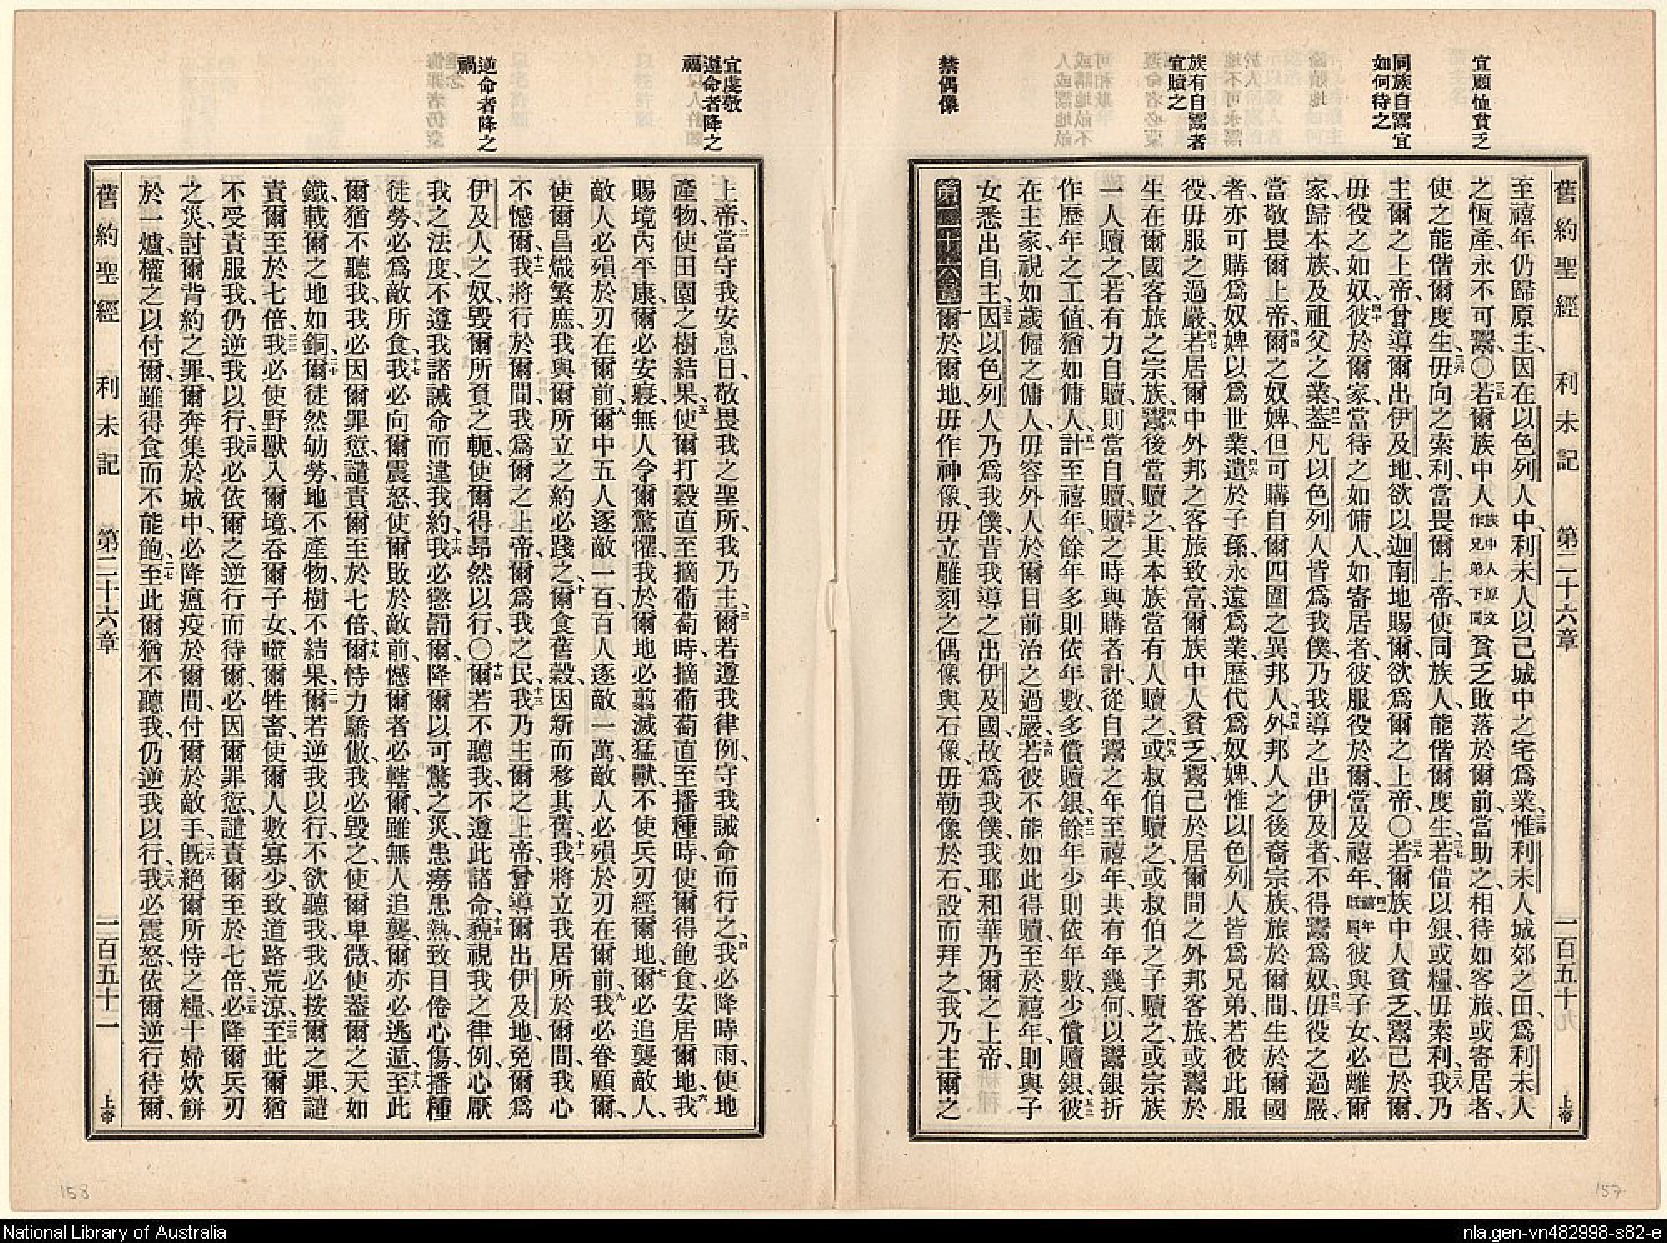 宜顧恤貧乏
同族自鬻宜
如何待之
族有自鬻者
宜贖之
禁偶像
舊約聖經 利未記 第二十六章 一百五十九 上帝
至禧年仍歸原主、因在以色列人中、利未人以己城中之宅爲業、惟利未人城郊之田、爲利未人
之恆產、永不可鬻、〇若爾族中人族中人原文作兄弟下同貧乏敗落於爾前、當助之、相待如客旅、或寄居者、
使之能偕爾度生、毋向之索利、當畏爾上帝、使同族人能偕爾度生、若借以銀或糧、毋索利、我乃
主爾之上帝、曾導爾出伊及地、欲以迦南地賜爾、欲爲爾之上帝、〇若爾族中人貧乏、鬻己於爾、
毋役之如奴、彼於爾家、當待之如傭人、如寄居者、彼服役於爾、當及禧年、彼與子女、必離爾
家、歸本族、及祖父之業、蓋凡以色列人皆爲我僕、乃我導之出伊及者、不得鬻爲奴、毋役之過嚴、
當敬畏爾上帝、爾之奴婢、但可購自爾四圍之異邦人、外邦人之後裔宗族、旅於爾間、生於爾國
者、亦可購爲奴婢、以爲世業、遺於子孫、永遠爲業、歷代爲奴婢、惟以色列人皆爲兄弟、若彼此服
役、毋服之過嚴、若居爾中外邦之客旅致富、爾族中人貧乏、鬻己於居爾間之外邦客旅、或鬻於
生在爾國客旅之宗族、鬻後當贖之、其本族當有人贖之、或叔伯贖之、或叔伯之子贖之、或宗族
一人贖之、若有力自贖、則當自贖、贖之時、與購者計、從自鬻之年至禧年、共有年幾何、以鬻銀折
作歷年之工值、猶如傭人、計至禧年、餘年多、則依年數、多償贖銀、餘年少、則依年數、少償贖銀、彼
在主家、視如歲僱之傭人、毋容外人於爾目前治之過嚴、若彼不能如此得贖、至於禧年、則與子
女悉出自主、因以色列人乃爲我僕、昔我導之出伊及國、故爲我僕、我耶和華乃爾之上帝、
第二十六章 爾於爾地、毋作神像、毋立雕刻之偶像與石像、毋勒像於石、設而拜之、我乃主爾之
宜虔敬
遵命者降之
福
逆命者降之
禍
上帝、當守我安息日、敬畏我之聖所、我乃主、爾若遵我律例、守我誡命而行之、我必降時雨、使地
產物、使田園之樹結果、使爾打穀直至摘葡萄時、摘葡萄直至播種時、使爾得飽食、安居爾地、我
賜境內平康、爾必安寢、無人令爾驚懼、我於爾地必翦滅猛獸、不使兵刃經爾地、爾必追襲敵人、
敵人必殞於刃在爾前、爾中五人逐敵一百、百人逐敵一萬、敵人必殞於刃在爾前、我必眷顧爾、
使爾昌熾繁庶、我與爾所立之約必踐之、爾食舊穀、因新而移其舊、我將立我居所於爾間、我心
不憾爾、我將行於爾間、我爲爾之上帝、爾爲我之民、我乃主爾之上帝、曾導爾出伊及地、免爾爲
伊及人之奴、毀爾所負之軛、使爾得昂然以行、〇爾若不聽我、不遵此諸命、藐視我之律例、心厭
我之法度、不遵我諸誡命而違我約、我必懲罰爾、降爾以可驚之災、患癆患熱、致目倦心傷、播種
徒勞、必爲敵所食、我必向爾震怒、使爾敗於敵前、憾爾者必轄爾、雖無人追襲、爾亦必逃遁、至此
爾猶不聽我、我必因爾罪愆、譴責爾至於七倍、爾恃力驕傲、我必毀之、使爾卑微、使蓋爾之天如
鐵、載爾之地如銅、爾徒然劬勞、地不產物、樹不結果、爾若逆我以行、不欲聽我、我必按爾之罪、譴
責爾至於七倍、我必使野獸入爾境、吞爾子女、噬爾牲畜、使爾人數寡少、致道路荒涼、至此爾猶
不受責服我、仍逆我以行、我必依爾之逆行而待爾、必因爾罪愆、譴責爾至於七倍、必降爾兵刃
之災、討爾背約之罪、爾奔集於城中、必降瘟疫於爾間、付爾於敵手、旣絕爾所恃之糧、十婦炊餅
於一爐、權之以付爾、雖得食而不能飽、至此爾猶不聽我、仍逆我以行、我必震怒、依爾逆行待爾、
舊約聖經 利未記 第二十六章 上帝
158
157
National Library of Australia
nla.gen-vn482998-s82-e